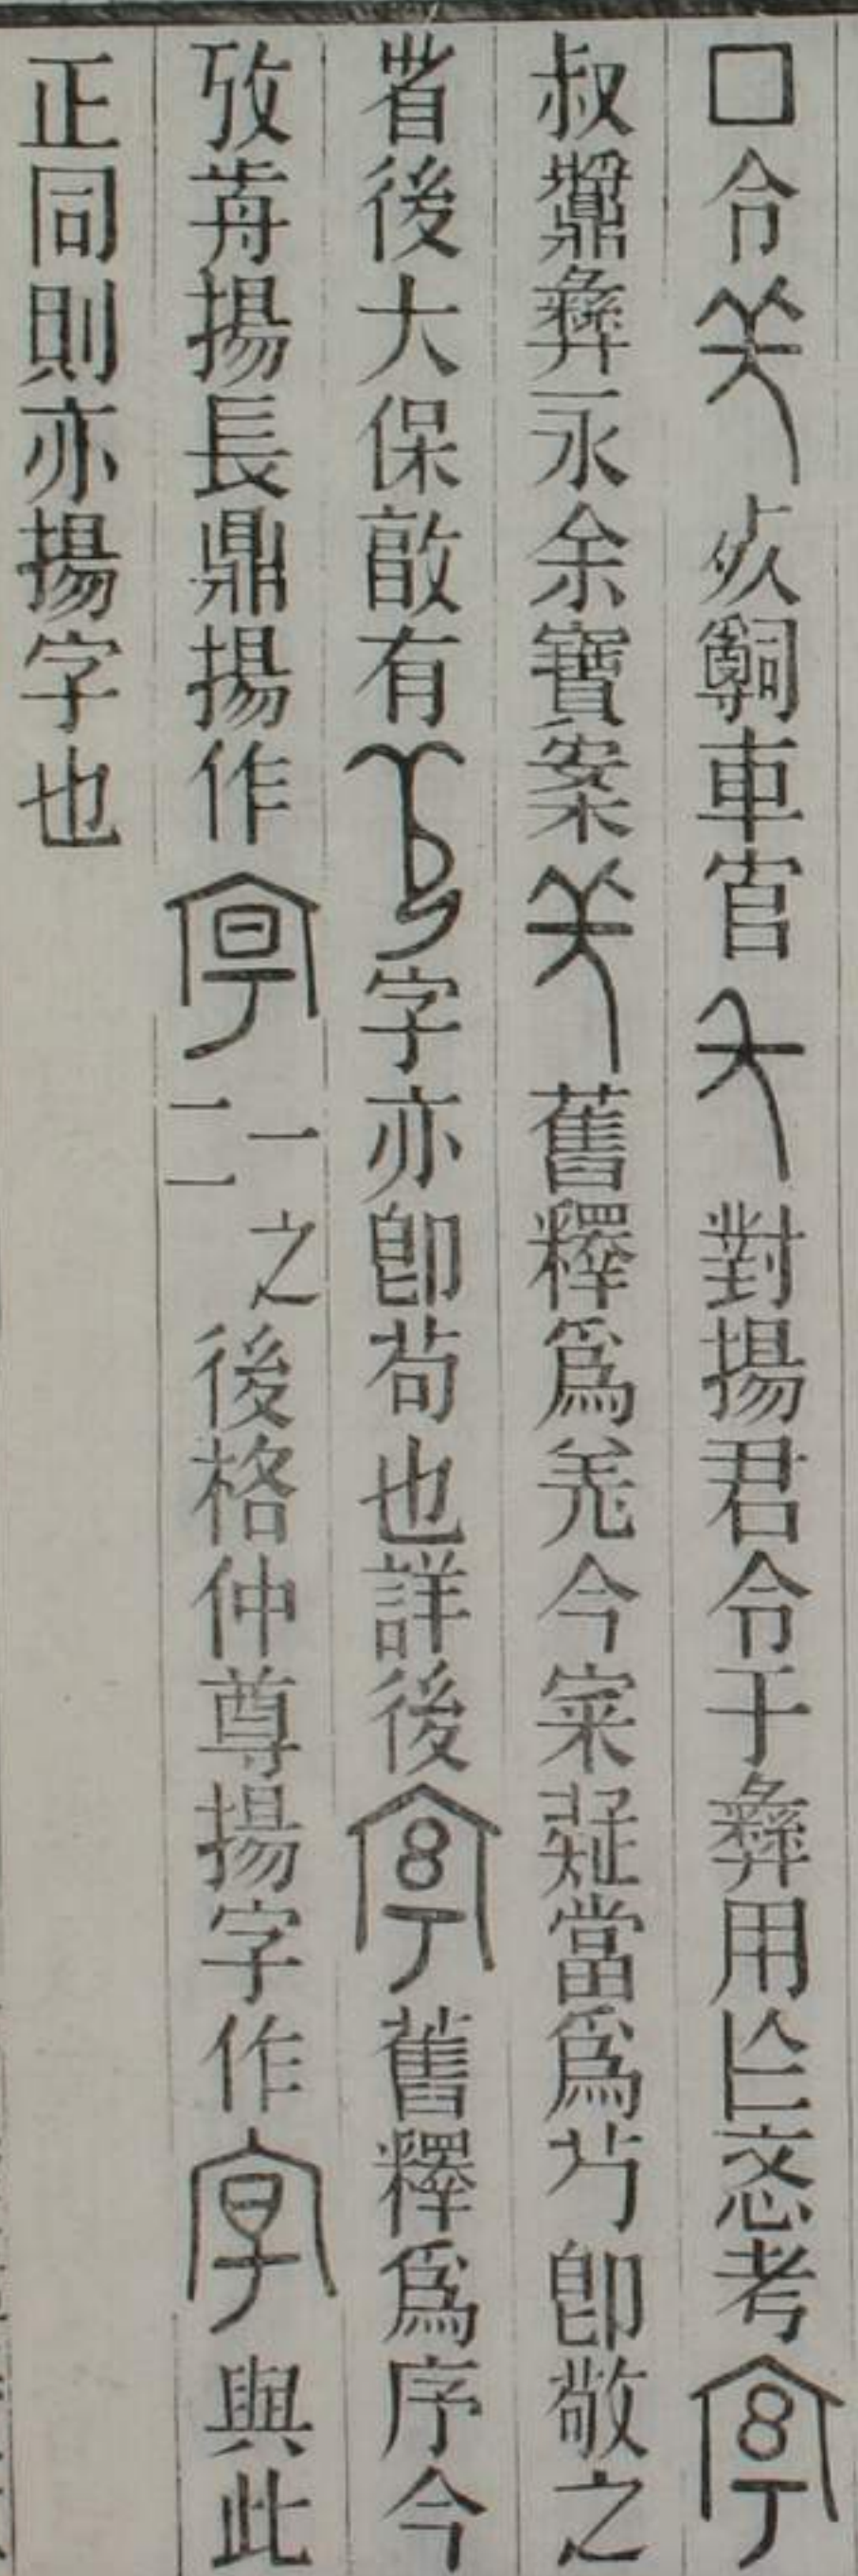 □令死𤔲車官對揚君令于彝用㠯文考
叔䵼彝永余寶案舊釋爲羌今案疑當爲芍卽敬之
省後大保𣪘有字亦卽茍也詳後舊釋爲序今
攷荐揚長鼎揚作二一之後格仲尊揚字作與此
正同則亦揚字也